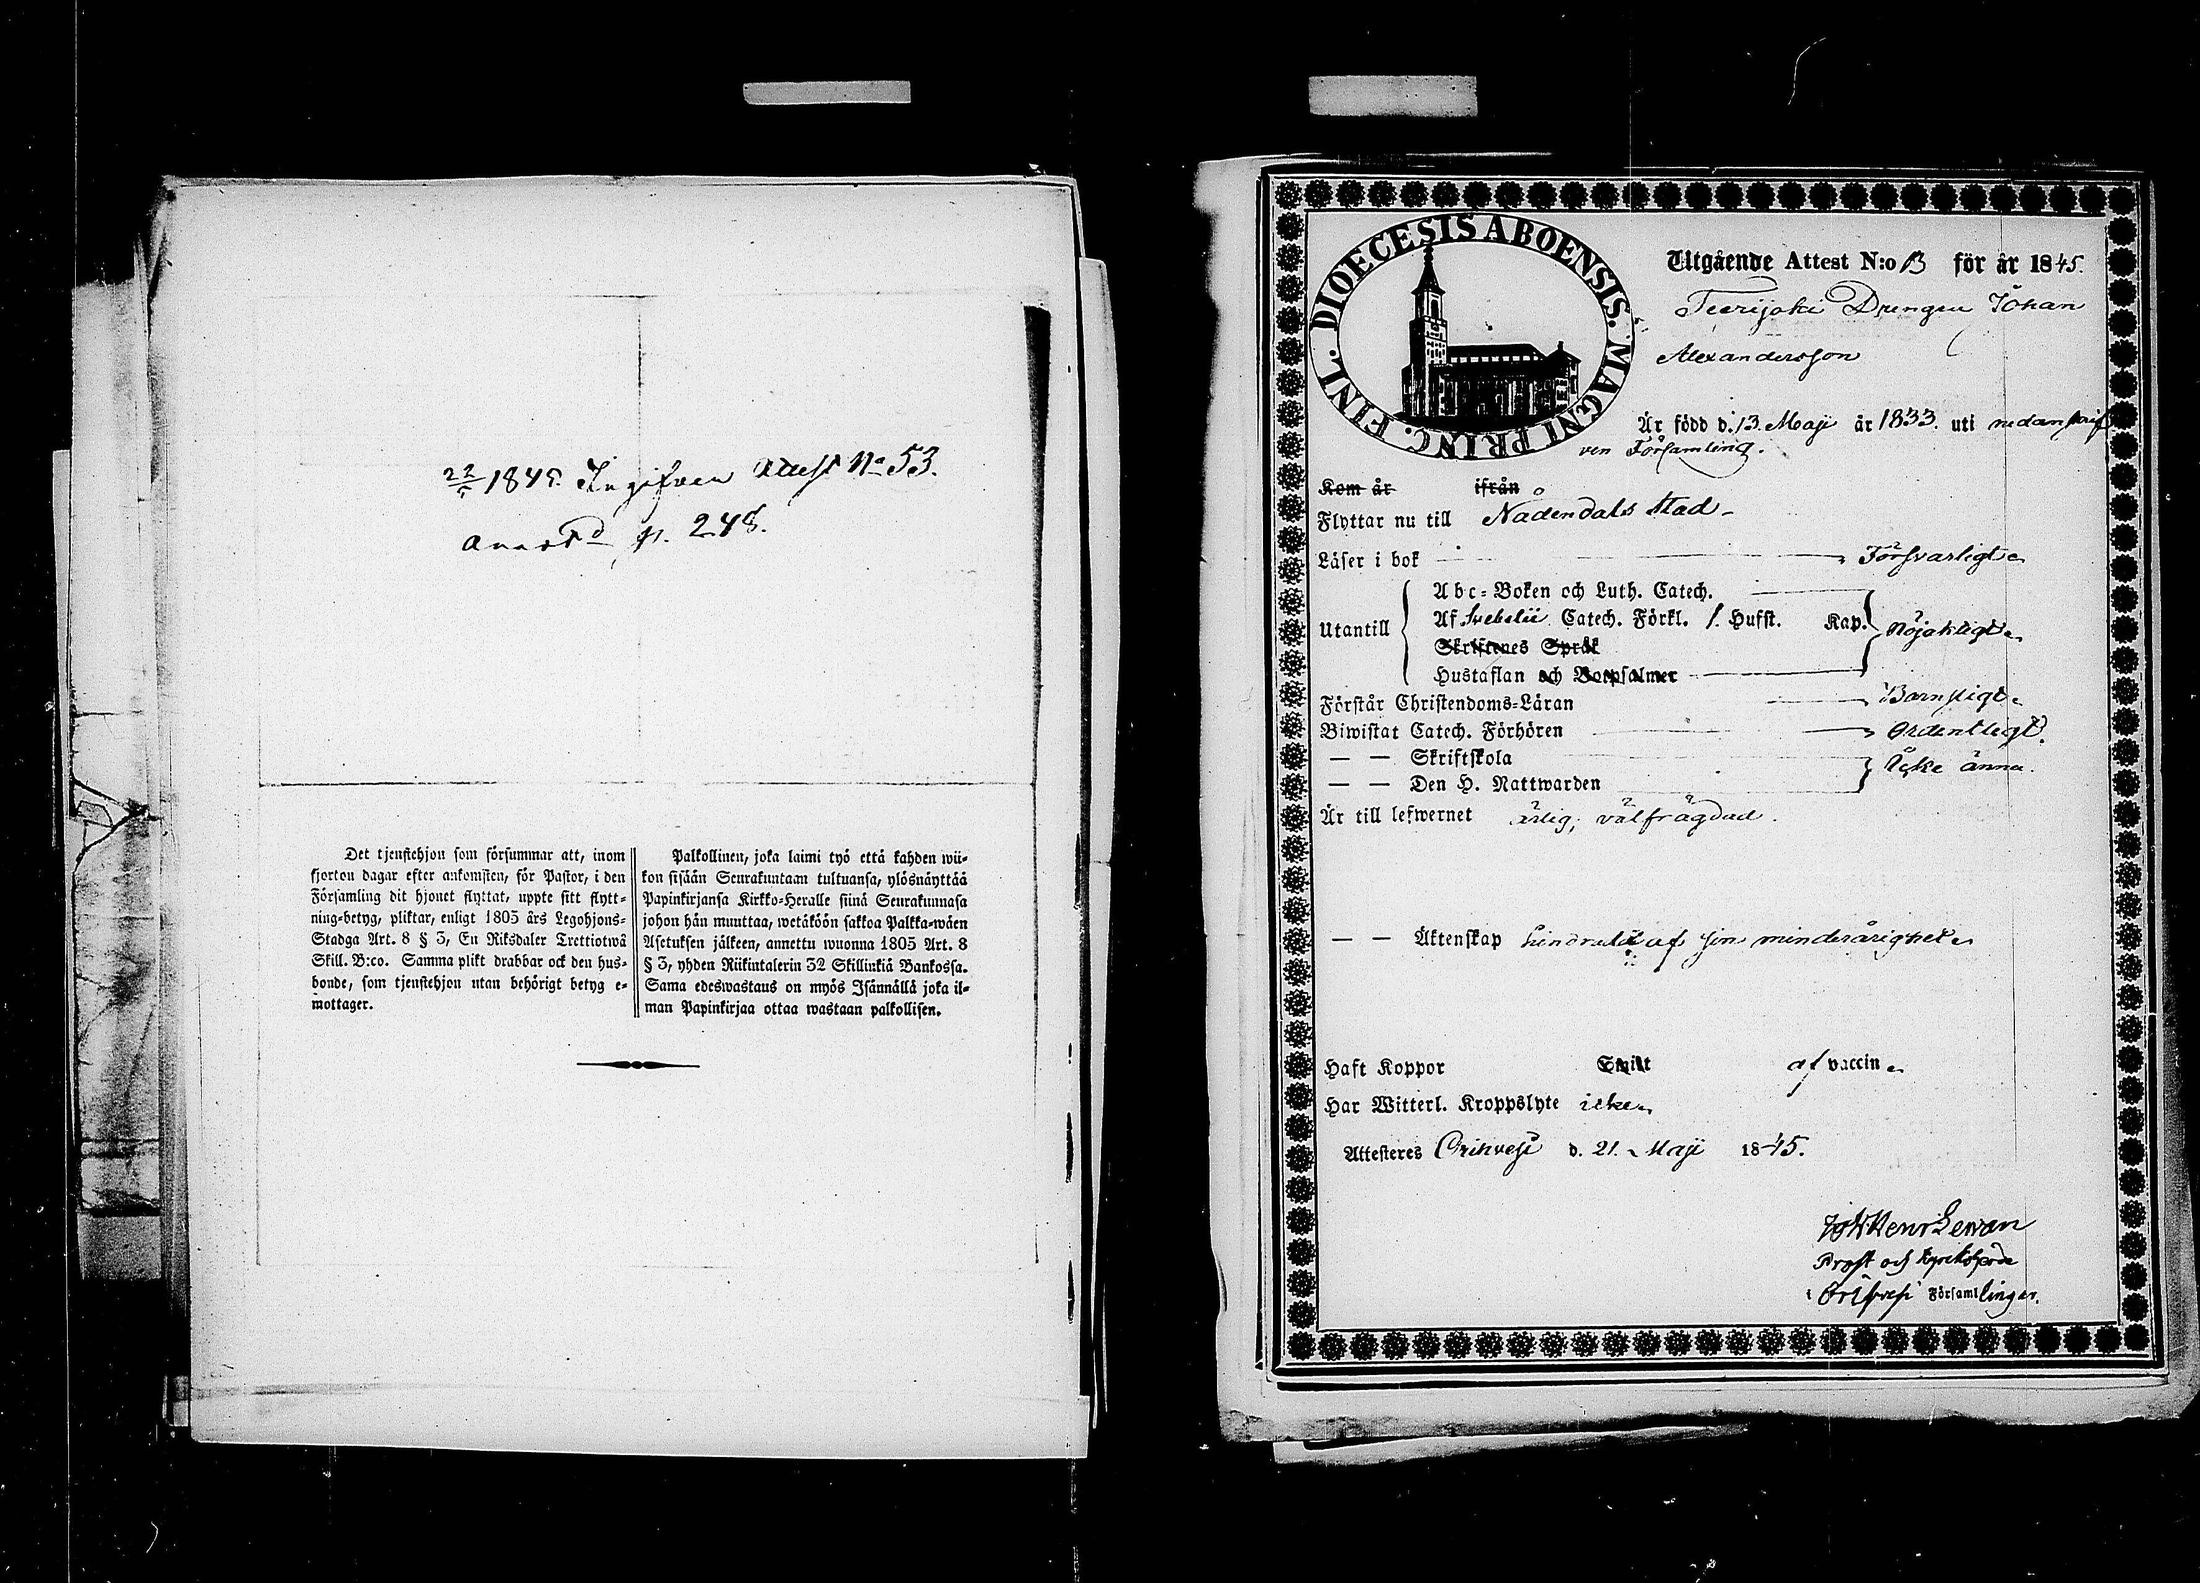 22/5 1845. Ingifven Attest No 53.
p. 248.
Det tjenstehjon som försummar att, inom
fjorton dagar efter ankomsten, för Pastor, i den
Församling dit hjonet flyttat, uppte sitt flytt-
ning-betyg, pliktar, enligt 1805 års Legohjons-
Stadga Art. 8 § 3, En Riksdaler Trettiotwå
Skill. B:co. Samma plikt drabbar ock den hus-
bonde, som tjenstehjon utan behörigt betyg e-
mottager.
Palkollinen, joka laimi työ että kahden wii-
kon sisään Seurakuntaan tultuansa, ylösnäyttää
Papinkirjansa Kirkko-Heralle siinä Seurakunnasa
johon hän muuttaa, wetäköön sakkoa Palkka-wäen
Asetuksen jälkeen, annettu wuonna 1805 Art. 8
§ 3, yhden Riikintalerin 32 Skillinkiä Bankossa.
Sama edeswastaus on myös Isännällä joka il-
man Papinkirjaa ottaa wastaan palkollisen.
DIOECESIS ABOENSIS. MAGNI PRINC. FINL.
Utgående Attest N:o 13 för år 1845.
Teerijoki Drengen Johan
Alexandersson
Är född d. 13 Maji år 1833. uti nedanskrif
ven Församling.
Kom år ifrån
Flyttar nu till Nådendals stad
Läser i bok Försvarligt
Utantill
Abc-Boken och Luth. Catech.
Af Svebelii Catech. Förkl. 1. Hufst. Kap.
Nöjaktigt
Skriftenes Språk
Hustaflan och Botpsalmer
Förstår Christendoms-Läran Barnsligt
Biwistat Catech. Förhören Ordentligt.
— — Skriftskola
Icke ännu.
— — Den H. Nattwarden
Är till lefwernet ärlig, välfrägdad.
— — Äktenskap hindrad af sin minderårighet
Haft Koppor Smitt af vaccin
Har Witterl. Kroppslyte icke
Attesteras Orihvesi d. 21 Maji 1845.
Joh Henr
Prost och Kyrkoherde
i Orihvesi Församlingar.